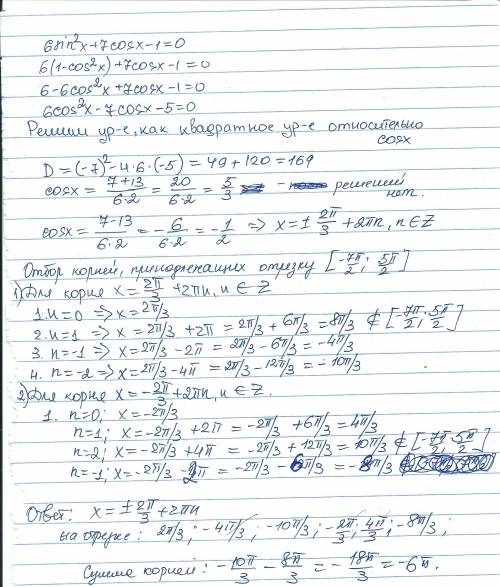 6sin²x+7cosx-1=0
6(1-cos²x)+7cosx-1=0
6-6cos²x+7cosx-1=0
6cos²x-7cosx-5=0
Решим ур-е, как квадратное ур-е относительно
cosx
D=(-7)²-4·6·(-5)=49+120=169
cosx=(7+13)/(6·2)=20/(6·2)=5/3 - решений
нет.
cosx=(7-13)/(6·2)=-6/(6·2)=-1/2 => x=±2π/3+2πn, n∈Z
Отбор корней, принадлежащих отрезку [-7π/2; 5π/2]
1) Для корня x=2π/3+2πn, n∈Z
1. n=0 => x=2π/3
2. n=1 => x=2π/3+2π=2π/3+6π/3=8π/3 ∉[-7π/2; 5π/2]
3. n=-1 => x=2π/3-2π=2π/3-6π/3=-4π/3
4. n=-2 => x=2π/3-4π=2π/3-12π/3=-10π/3
2) Для корня x=-2π/3+2πn, n∈Z.
1. n=0; x=-2π/3
n=1; x=-2π/3+2π=-2π/3+6π/3=4π/3
n=2; x=-2π/3+4π=-2π/3+12π/3=10π/3∉[-7π/2; 5π/2]
n=-1; x=-2π/3-2π=-2π/3-6π/3=-8π/3
Ответ: x=±2π/3+2πn
на отрезке: 2π/3; -4π/3; -10π/3; -2π/3; 4π/3; -8π/3;
Сумма корней: -10π/3-8π/3=-18π/3=-6π.